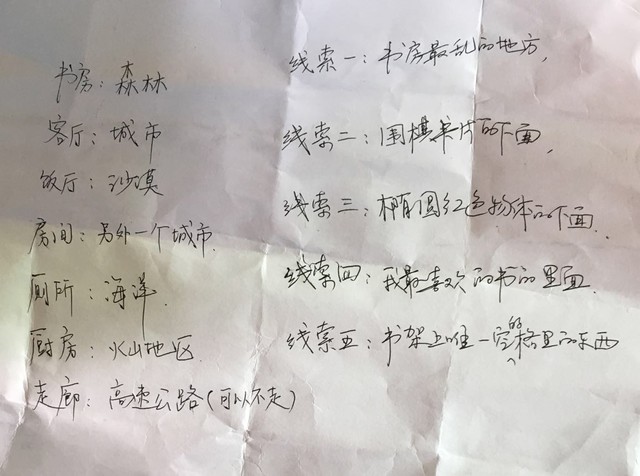 书房：森林
客厅：城市
饭厅：沙漠
房间：另外一个城市.
厕所：海洋.
厨房：火山地区.
走廊：高速公路(可以不走)
线索一：书房最乱的地方,
线索二：围棋卡片的下面,
线索三：椭圆红色物体的下面.
线索四：我最喜欢的书的里面.
线索五：书架上唯一空的格里的东西